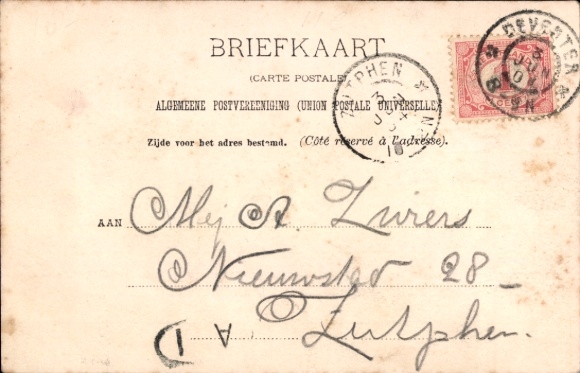 BRIEFKAART
(CARTE POSTALE)
ALGEMEENE POSTVEREENIGING (UNION POSTALE UNIVERSELLE)
Zijde voor het adres bestemd. (Côté réservé à l'adresse).
ZUTPHEN
DEVENTER
1
AAN Mej A. Zwiers
Nieuwstad 28
Zutphen.
D A